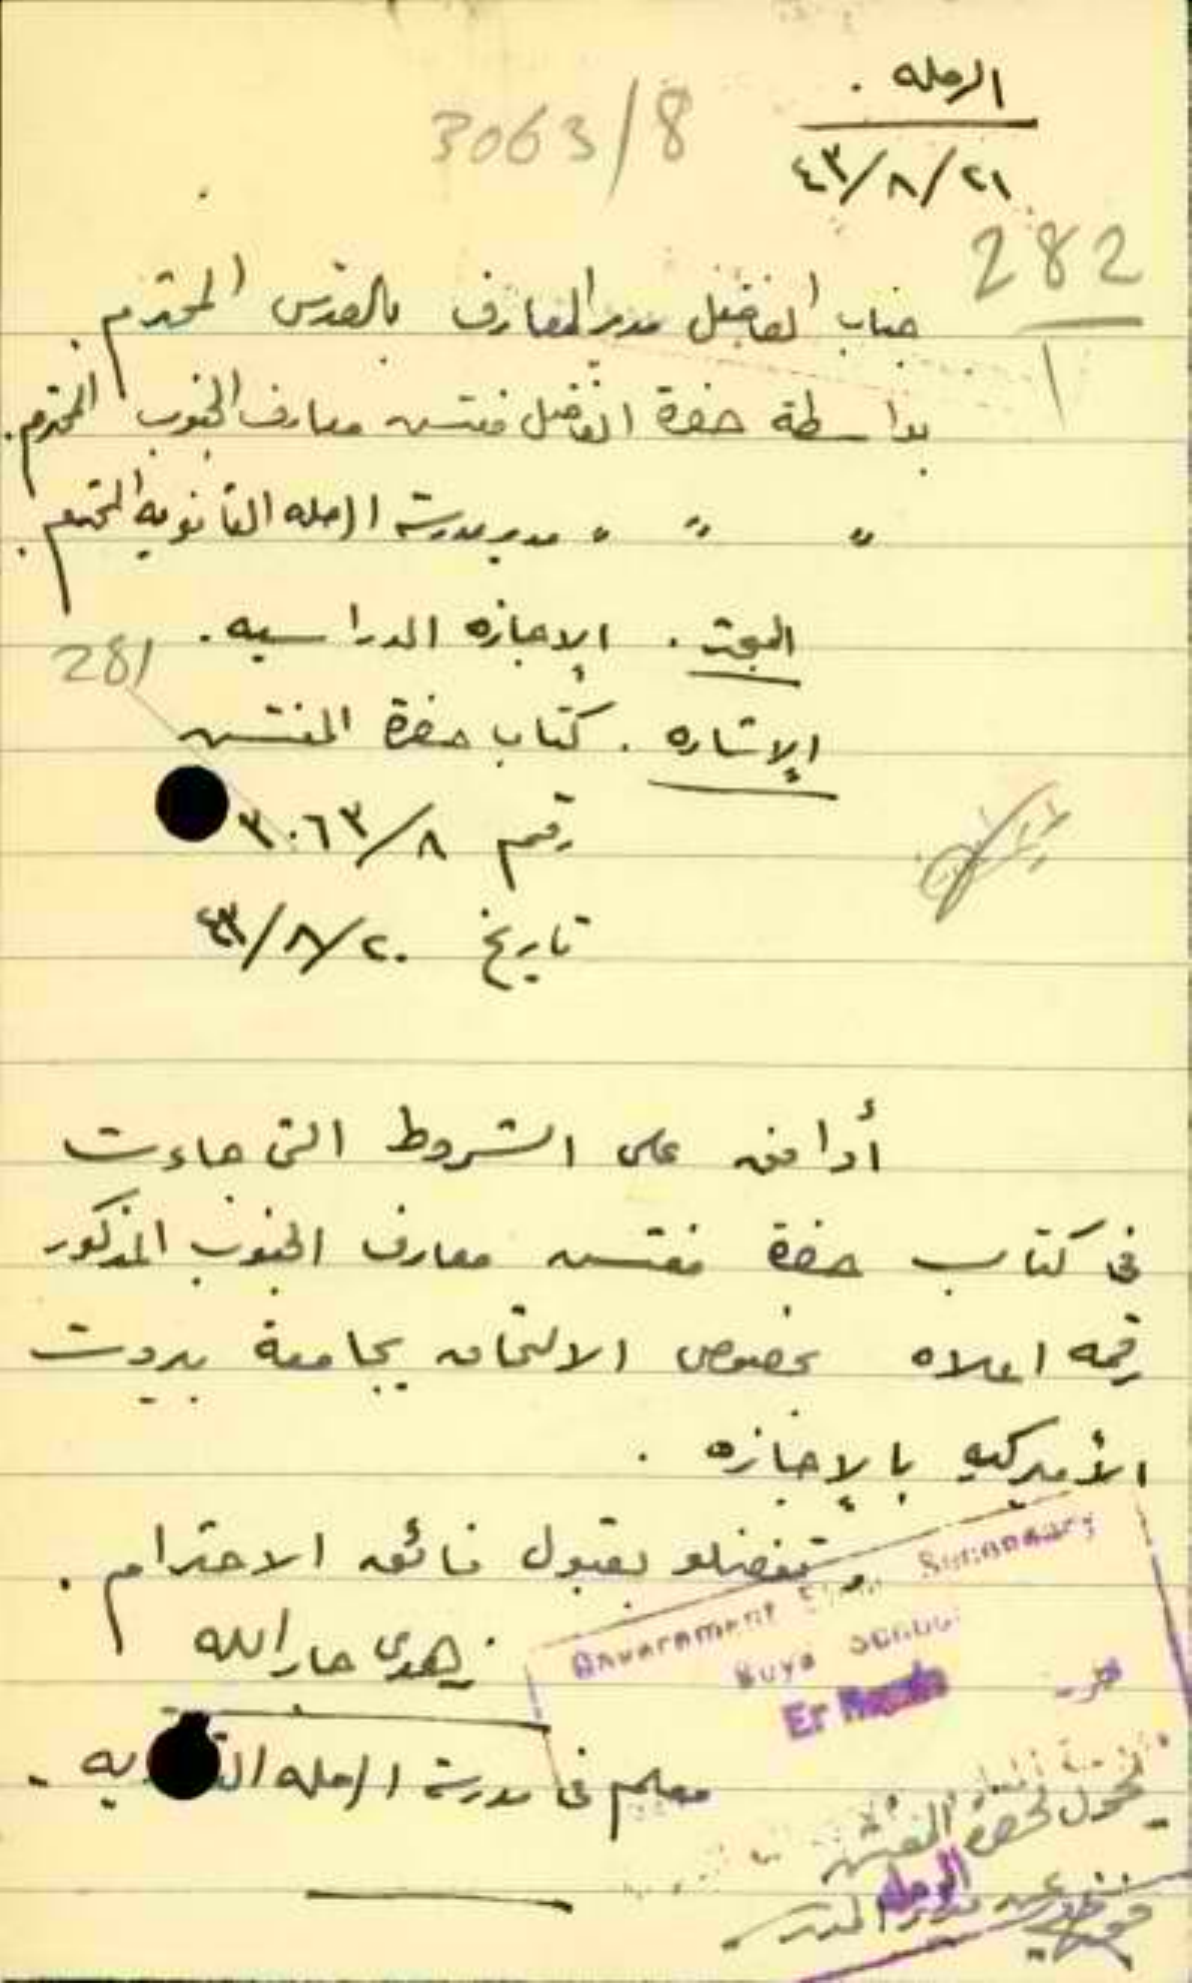 الرمله .
3063/8
٢١/٨/٤٣
282
1
جناب الفاضل مدير المعارف بالقدس المحترم .
بواسطة حضرة الفاضل مفتش معارف الجنوب المحترم .
" " " مدير مدرسة الرمله الثانويه المحترم .
المبحث . الإجازه الدراسيه .
281
الإشاره . كتاب حضرة المفتش
رقم ٣٠٦٣/٨
تاريخ ٢٠/٨/٤٣
أوافق على الشروط التي جاءت
في كتاب حضرة مفتش معارف الجنوب المذكور
رقمه اعلاه بخصوص الالتحاق بجامعة بيروت
الأميركيه بالإجازه .
وتفضلو بقبول فائق الاحترام .
زهدي جارالله
معلم في مدرسة الرمله
Government Secondary
Boys School
Er Ramle
تحول لحضرة المفتش
الرمله